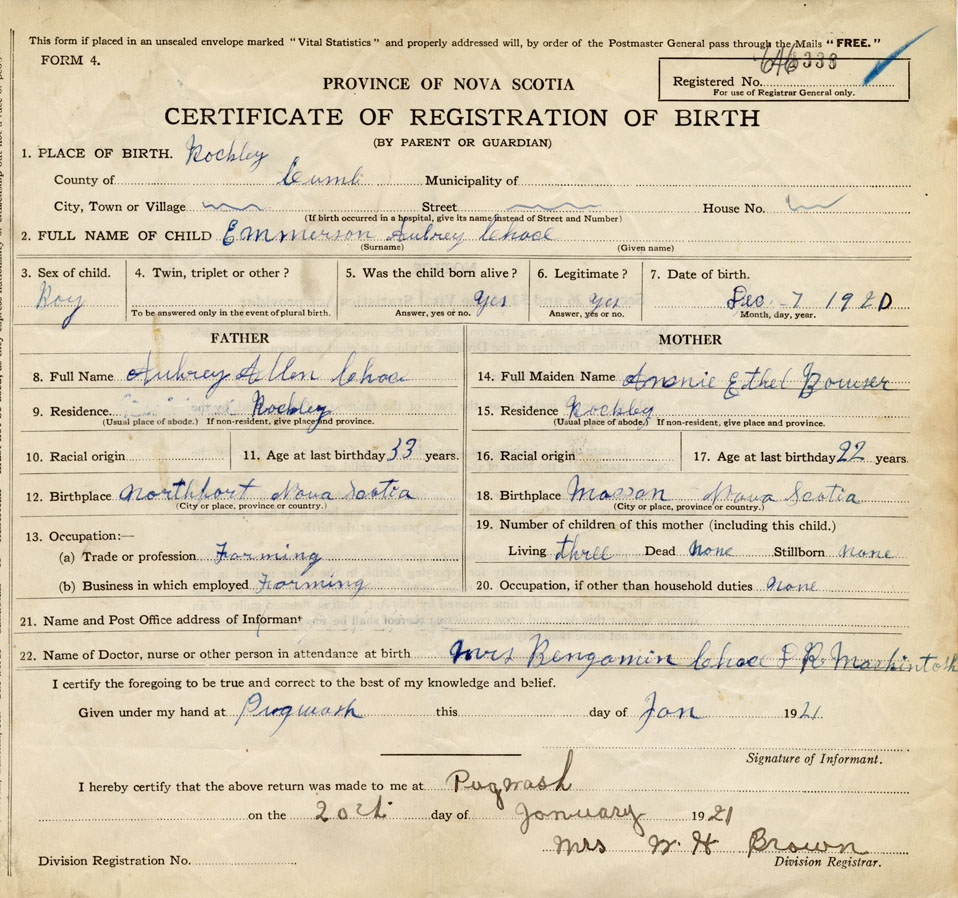 This form if placed in an unsealed envelope marked "Vital Statistics" and properly addressed will, by order of the Postmaster General pass through the Mails "FREE."
FORM 4.
PROVINCE OF NOVA SCOTIA
Registered No. 646338
For use of Registrar General only.
CERTIFICATE OF REGISTRATION OF BIRTH
(BY PARENT OR GUARDIAN)
1. PLACE OF BIRTH. Rockley
County of Cumb Municipality of
City, Town or Village Street House No.
(If birth occurred in a hospital, give its name instead of Street and Number)
2. FULL NAME OF CHILD Emmerson Aubrey Chace
(Surname) (Given name)
3. Sex of child. 4. Twin, triplet or other? 5. Was the child born alive? 6. Legitimate? 7. Date of birth.
Boy Yes Yes Dec - 7 1920
To be answered only in the event of plural birth. Answer, yes or no. Answer, yes or no. Month, day, year.
FATHER MOTHER
8. Full Name Aubrey Allen Chace 14. Full Maiden Name Annie Ethel Bowser
9. Residence Rockley 15. Residence Rockley
(Usual place of abode.) If non-resident, give place and province. (Usual place of abode.) If non-resident, give place and province.
10. Racial origin 11. Age at last birthday 33 years. 16. Racial origin 17. Age at last birthday 22 years.
12. Birthplace Northport Nova Scotia 18. Birthplace Nova Scotia
(City or place, province or country.) (City or place, province or country.)
13. Occupation:— 19. Number of children of this mother (including this child.)
(a) Trade or profession Farming Living three Dead None Stillborn None
(b) Business in which employed Farming 20. Occupation, if other than household duties None
21. Name and Post Office address of Informant
22. Name of Doctor, nurse or other person in attendance at birth Mrs Bengamin Chace Mackintosh
I certify the foregoing to be true and correct to the best of my knowledge and belief.
Given under my hand at Pugwash this day of Jan 1921
Signature of Informant.
I hereby certify that the above return was made to me at Pugwash
on the 20th day of January 1921
Mrs W. H Brown
Division Registration No. Division Registrar.